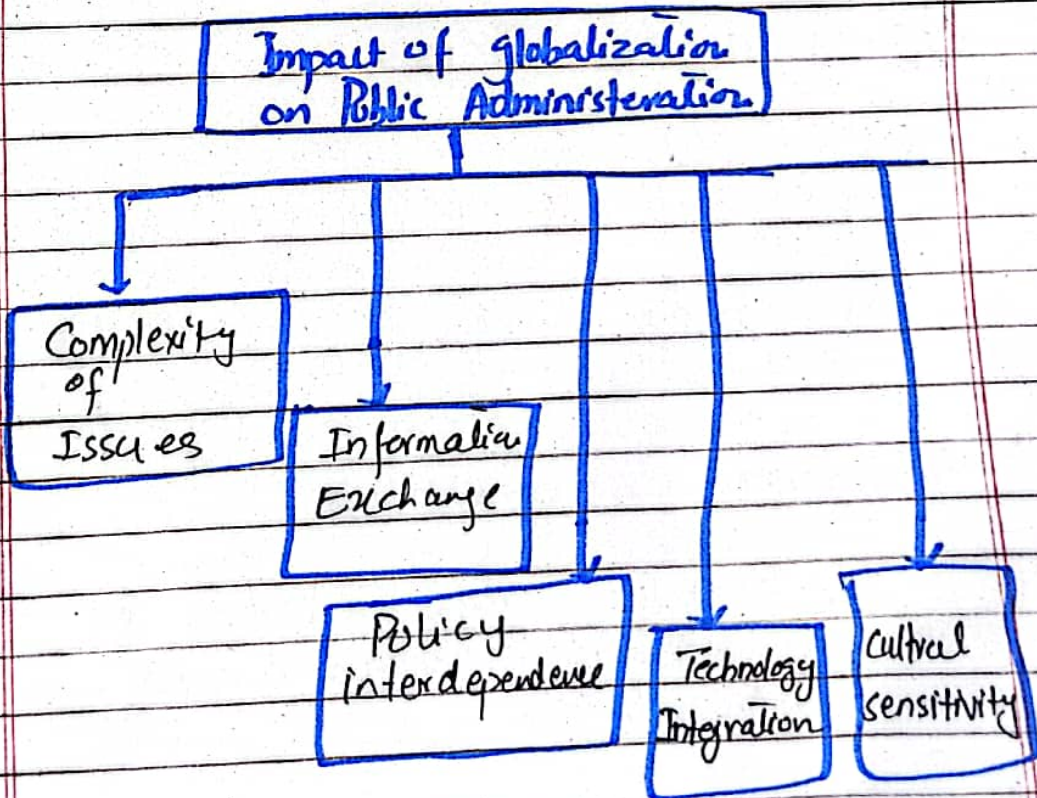 Impact of globalization
on Public Administeration
Complexity
of
Issues
Information
Exchange
Policy
interdependence
Technology
Integration
Cultrual
sensitivity